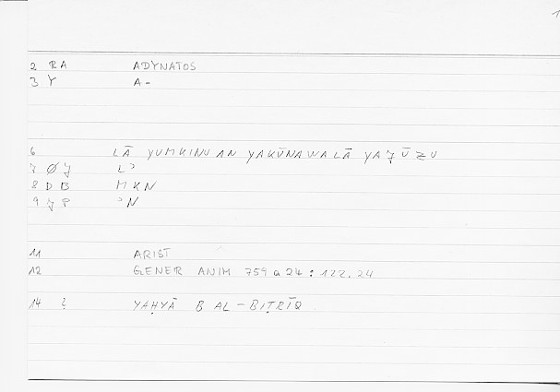 2 RA ADYNATOS
3 Y A-
6 LĀ YUMKINU AN YAKŪNAWALĀ YAJŪZU
7 Ø J Lʾ
8 D B MKN
9 J P ʾN
11 ARIST
12 GENER ANIM 759 a 24 : 122.24
14 2 YAḤYĀ B AL-BIṬRĪQ